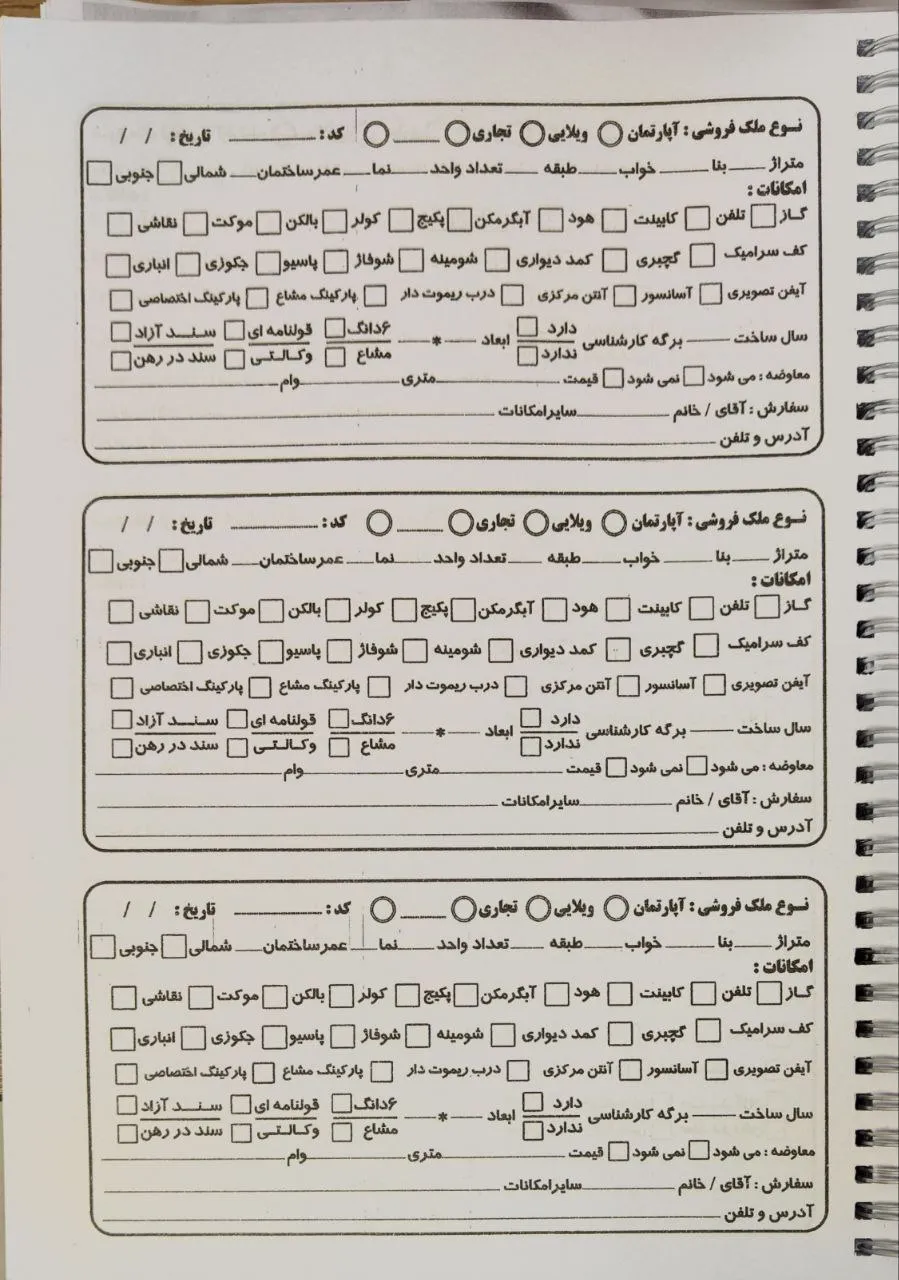 نوع ملک فروشی : آپارتمان ویلایی تجاری کد : تاریخ : / /
متراژ بنا خواب طبقه تعداد واحد نما عمر ساختمان شمالی جنوبی
امکانات :
گاز تلفن کابینت هود آبگرمکن پکیج کولر بالکن موکت نقاشی
کف سرامیک گچبری کمد دیواری شومینه شوفاژ پاسیو جکوزی انباری
آیفن تصویری آسانسور آنتن مرکزی درب ریموت دار پارکینگ مشاع پارکینگ اختصاصی
سال ساخت برگه کارشناسی دارد ابعاد * ۶دانگ قولنامه ای سند آزاد
ندارد مشاع وکالتی سند در رهن
معاوضه : می شود نمی شود قیمت متری وام
سفارش : آقای / خانم سایر امکانات
آدرس و تلفن
نوع ملک فروشی : آپارتمان ویلایی تجاری کد : تاریخ : / /
متراژ بنا خواب طبقه تعداد واحد نما عمر ساختمان شمالی جنوبی
امکانات :
گاز تلفن کابینت هود آبگرمکن پکیج کولر بالکن موکت نقاشی
کف سرامیک گچبری کمد دیواری شومینه شوفاژ پاسیو جکوزی انباری
آیفن تصویری آسانسور آنتن مرکزی درب ریموت دار پارکینگ مشاع پارکینگ اختصاصی
سال ساخت برگه کارشناسی دارد ابعاد * ۶دانگ قولنامه ای سند آزاد
ندارد مشاع وکالتی سند در رهن
معاوضه : می شود نمی شود قیمت متری وام
سفارش : آقای / خانم سایر امکانات
آدرس و تلفن
نوع ملک فروشی : آپارتمان ویلایی تجاری کد : تاریخ : / /
متراژ بنا خواب طبقه تعداد واحد نما عمر ساختمان شمالی جنوبی
امکانات :
گاز تلفن کابینت هود آبگرمکن پکیج کولر بالکن موکت نقاشی
کف سرامیک گچبری کمد دیواری شومینه شوفاژ پاسیو جکوزی انباری
آیفن تصویری آسانسور آنتن مرکزی درب ریموت دار پارکینگ مشاع پارکینگ اختصاصی
سال ساخت برگه کارشناسی دارد ابعاد * ۶دانگ قولنامه ای سند آزاد
ندارد مشاع وکالتی سند در رهن
معاوضه : می شود نمی شود قیمت متری وام
سفارش : آقای / خانم سایر امکانات
آدرس و تلفن